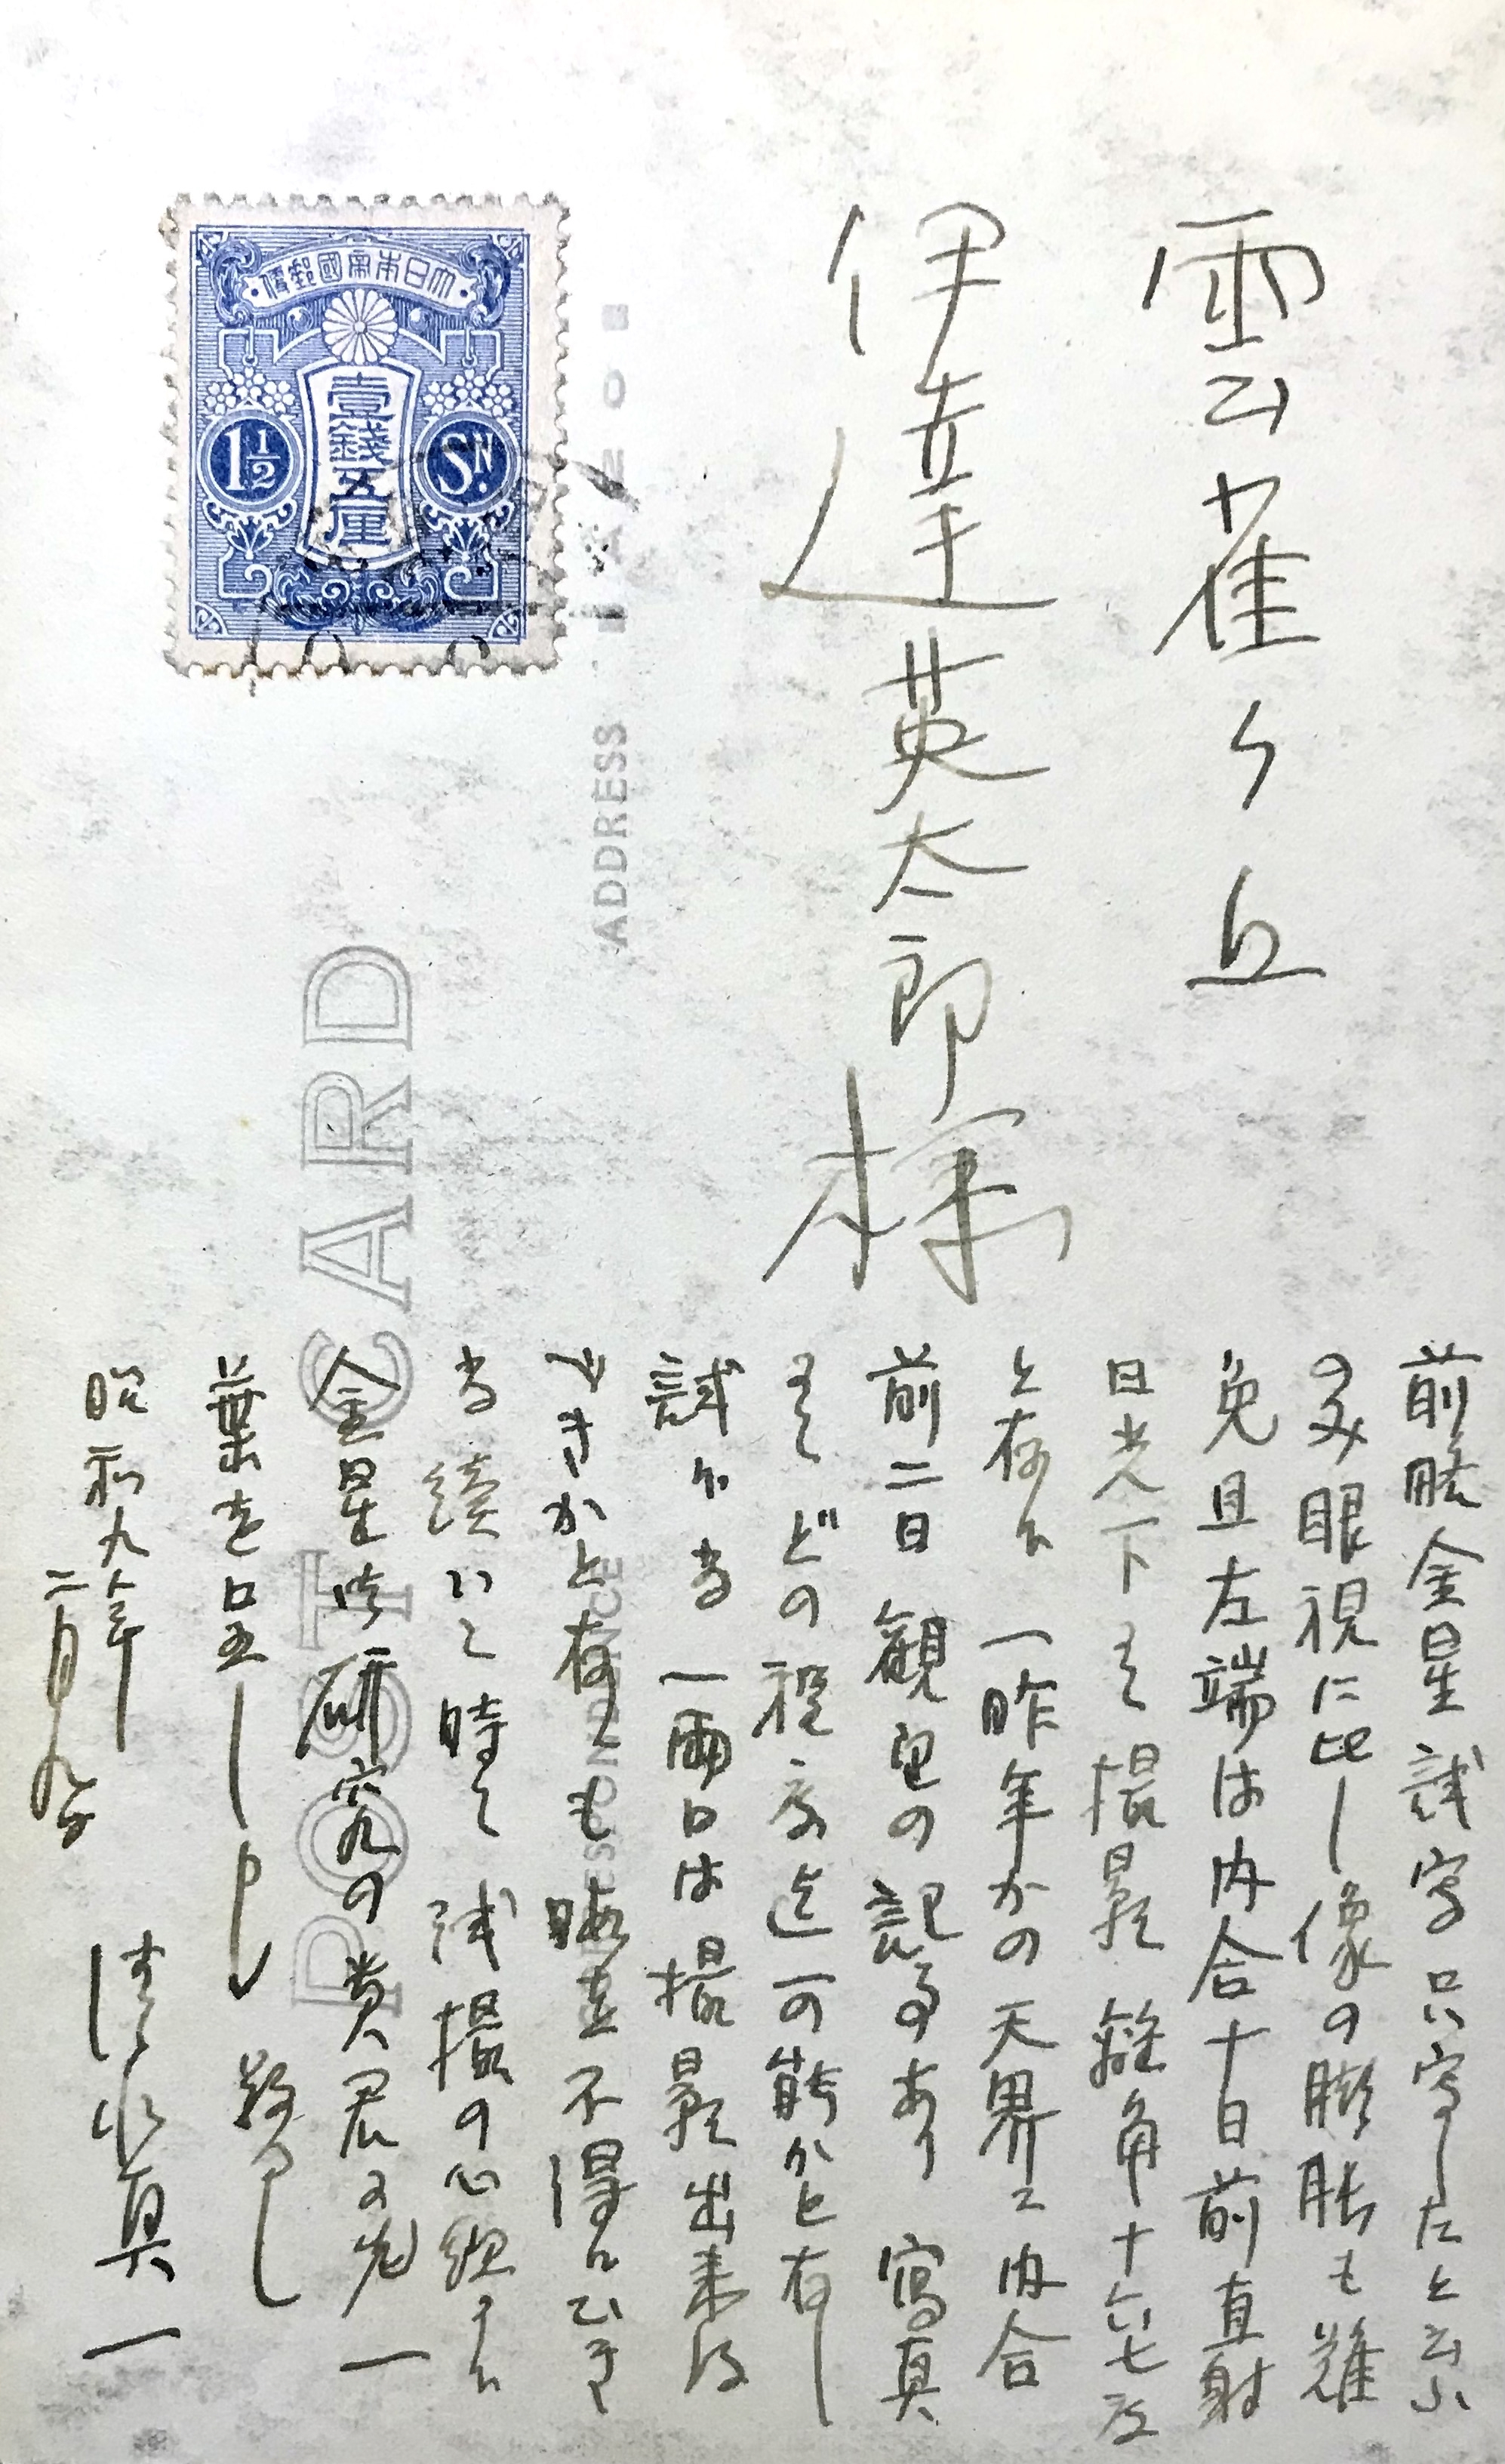 雲雀ヶ丘
伊達英太郎様
前略金星試写只寫したと云ふ
のみ眼視に比し像の膨脹も難
免且左端は内合十日前直射
日光下にて撮影 離角十六七度
と存候 一昨年かの天界に内合
前二日観望の記事あり 寫真
にてどの程度迄可能かと存し
試み候 一両日は撮影出来得
べきかと存しも 晴天不得
候 続いて時々試撮の心組に候
金星御研究の貴君に先一
葉を呈し申し 敬具
昭和九年
二月九日
清水真一
大日本帝國郵便
壹錢五厘
1½
SN.
POST CARD
CORRESPONDENCE
ADDRESS